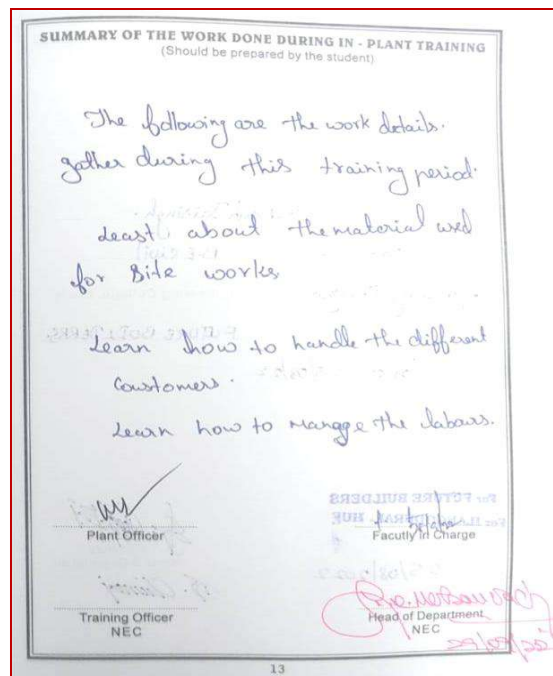 SUMMARY OF THE WORK DONE DURING IN - PLANT TRAINING
(Should be prepared by the student)
The following are the work details.
gather during this training period.
Least about the material used
for Site works
Learn how to handle the different
Coustomers.
Learn how to mangge the labours.
Plant Officer
Facutly in Charge
Training Officer
NEC
Head of Department
NEC
13